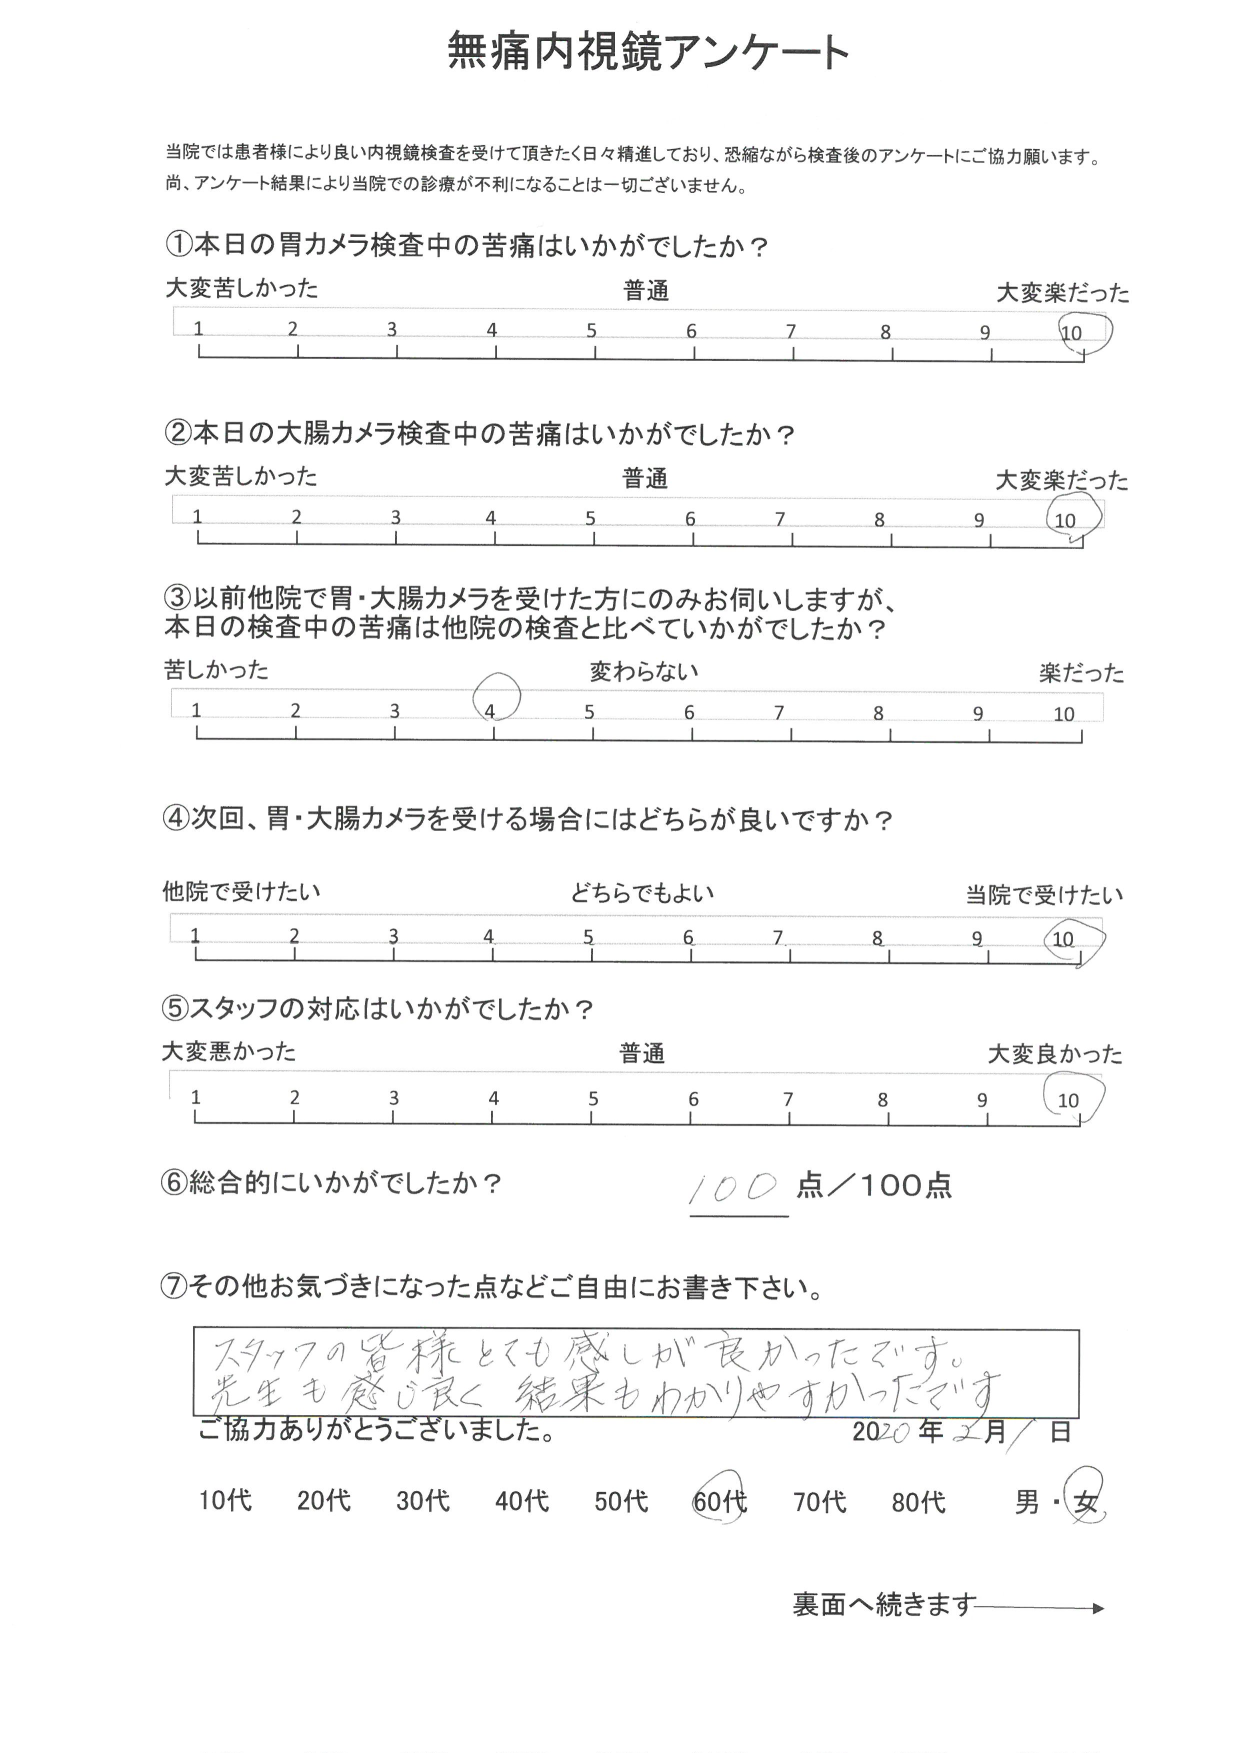 無痛内視鏡アンケート
当院では患者様により良い内視鏡検査を受けて頂きたく日々精進しており、恐縮ながら検査後のアンケートにご協力願います。
尚、アンケート結果により当院での診療が不利になることは一切ございません。
①本日の胃カメラ検査中の苦痛はいかがでしたか？
大変苦しかった 普通 大変楽だった
1 2 3 4 5 6 7 8 9 10
②本日の大腸カメラ検査中の苦痛はいかがでしたか？
大変苦しかった 普通 大変楽だった
1 2 3 4 5 6 7 8 9 10
③以前他院で胃・大腸カメラを受けた方にのみお伺いしますが、
本日の検査中の苦痛は他院の検査と比べていかがでしたか？
苦しかった 変わらない 楽だった
1 2 3 4 5 6 7 8 9 10
④次回、胃・大腸カメラを受ける場合にはどちらが良いですか？
他院で受けたい どちらでもよい 当院で受けたい
1 2 3 4 5 6 7 8 9 10
⑤スタッフの対応はいかがでしたか？
大変悪かった 普通 大変良かった
1 2 3 4 5 6 7 8 9 10
⑥総合的にいかがでしたか？ 100 点／100点
⑦その他お気づきになった点などご自由にお書き下さい。
スタッフの皆様とても感しが良かったです。
先生も感じ良く 結果もわかりやすかったです
ご協力ありがとうございました。 2020年2月1日
10代 20代 30代 40代 50代 60代 70代 80代 男・女
裏面へ続きます